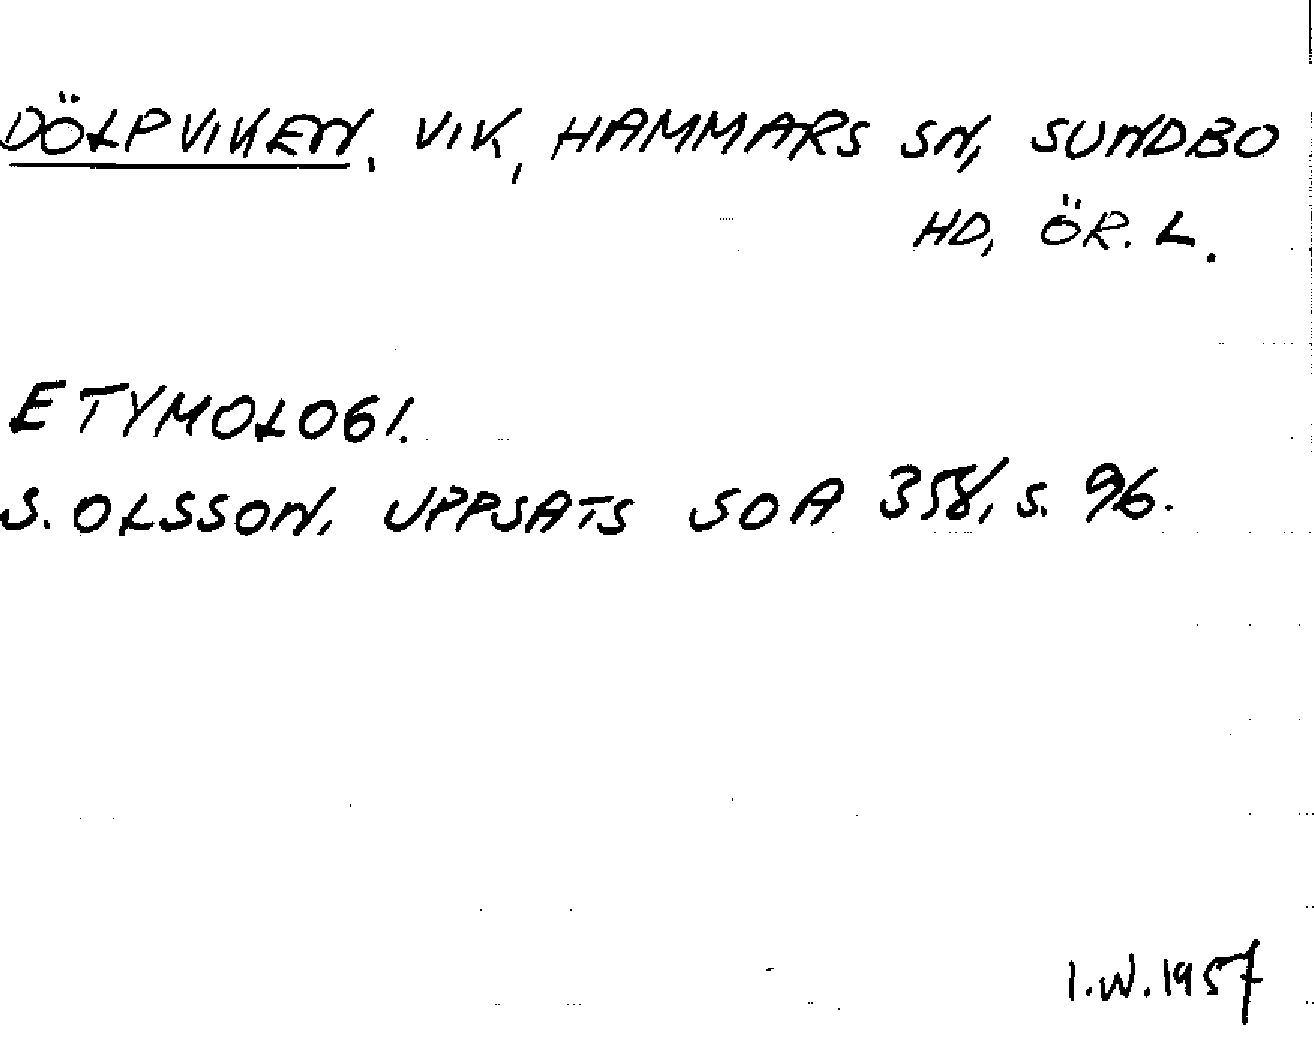 DÖLPVIKEN, VIK, HAMMARS SN, SUNDBO
HD, ÖR. L.
ETYMOLOGI.
S. OLSSON, UPPSATS SOA 358, S. 96.
I.W. 1957